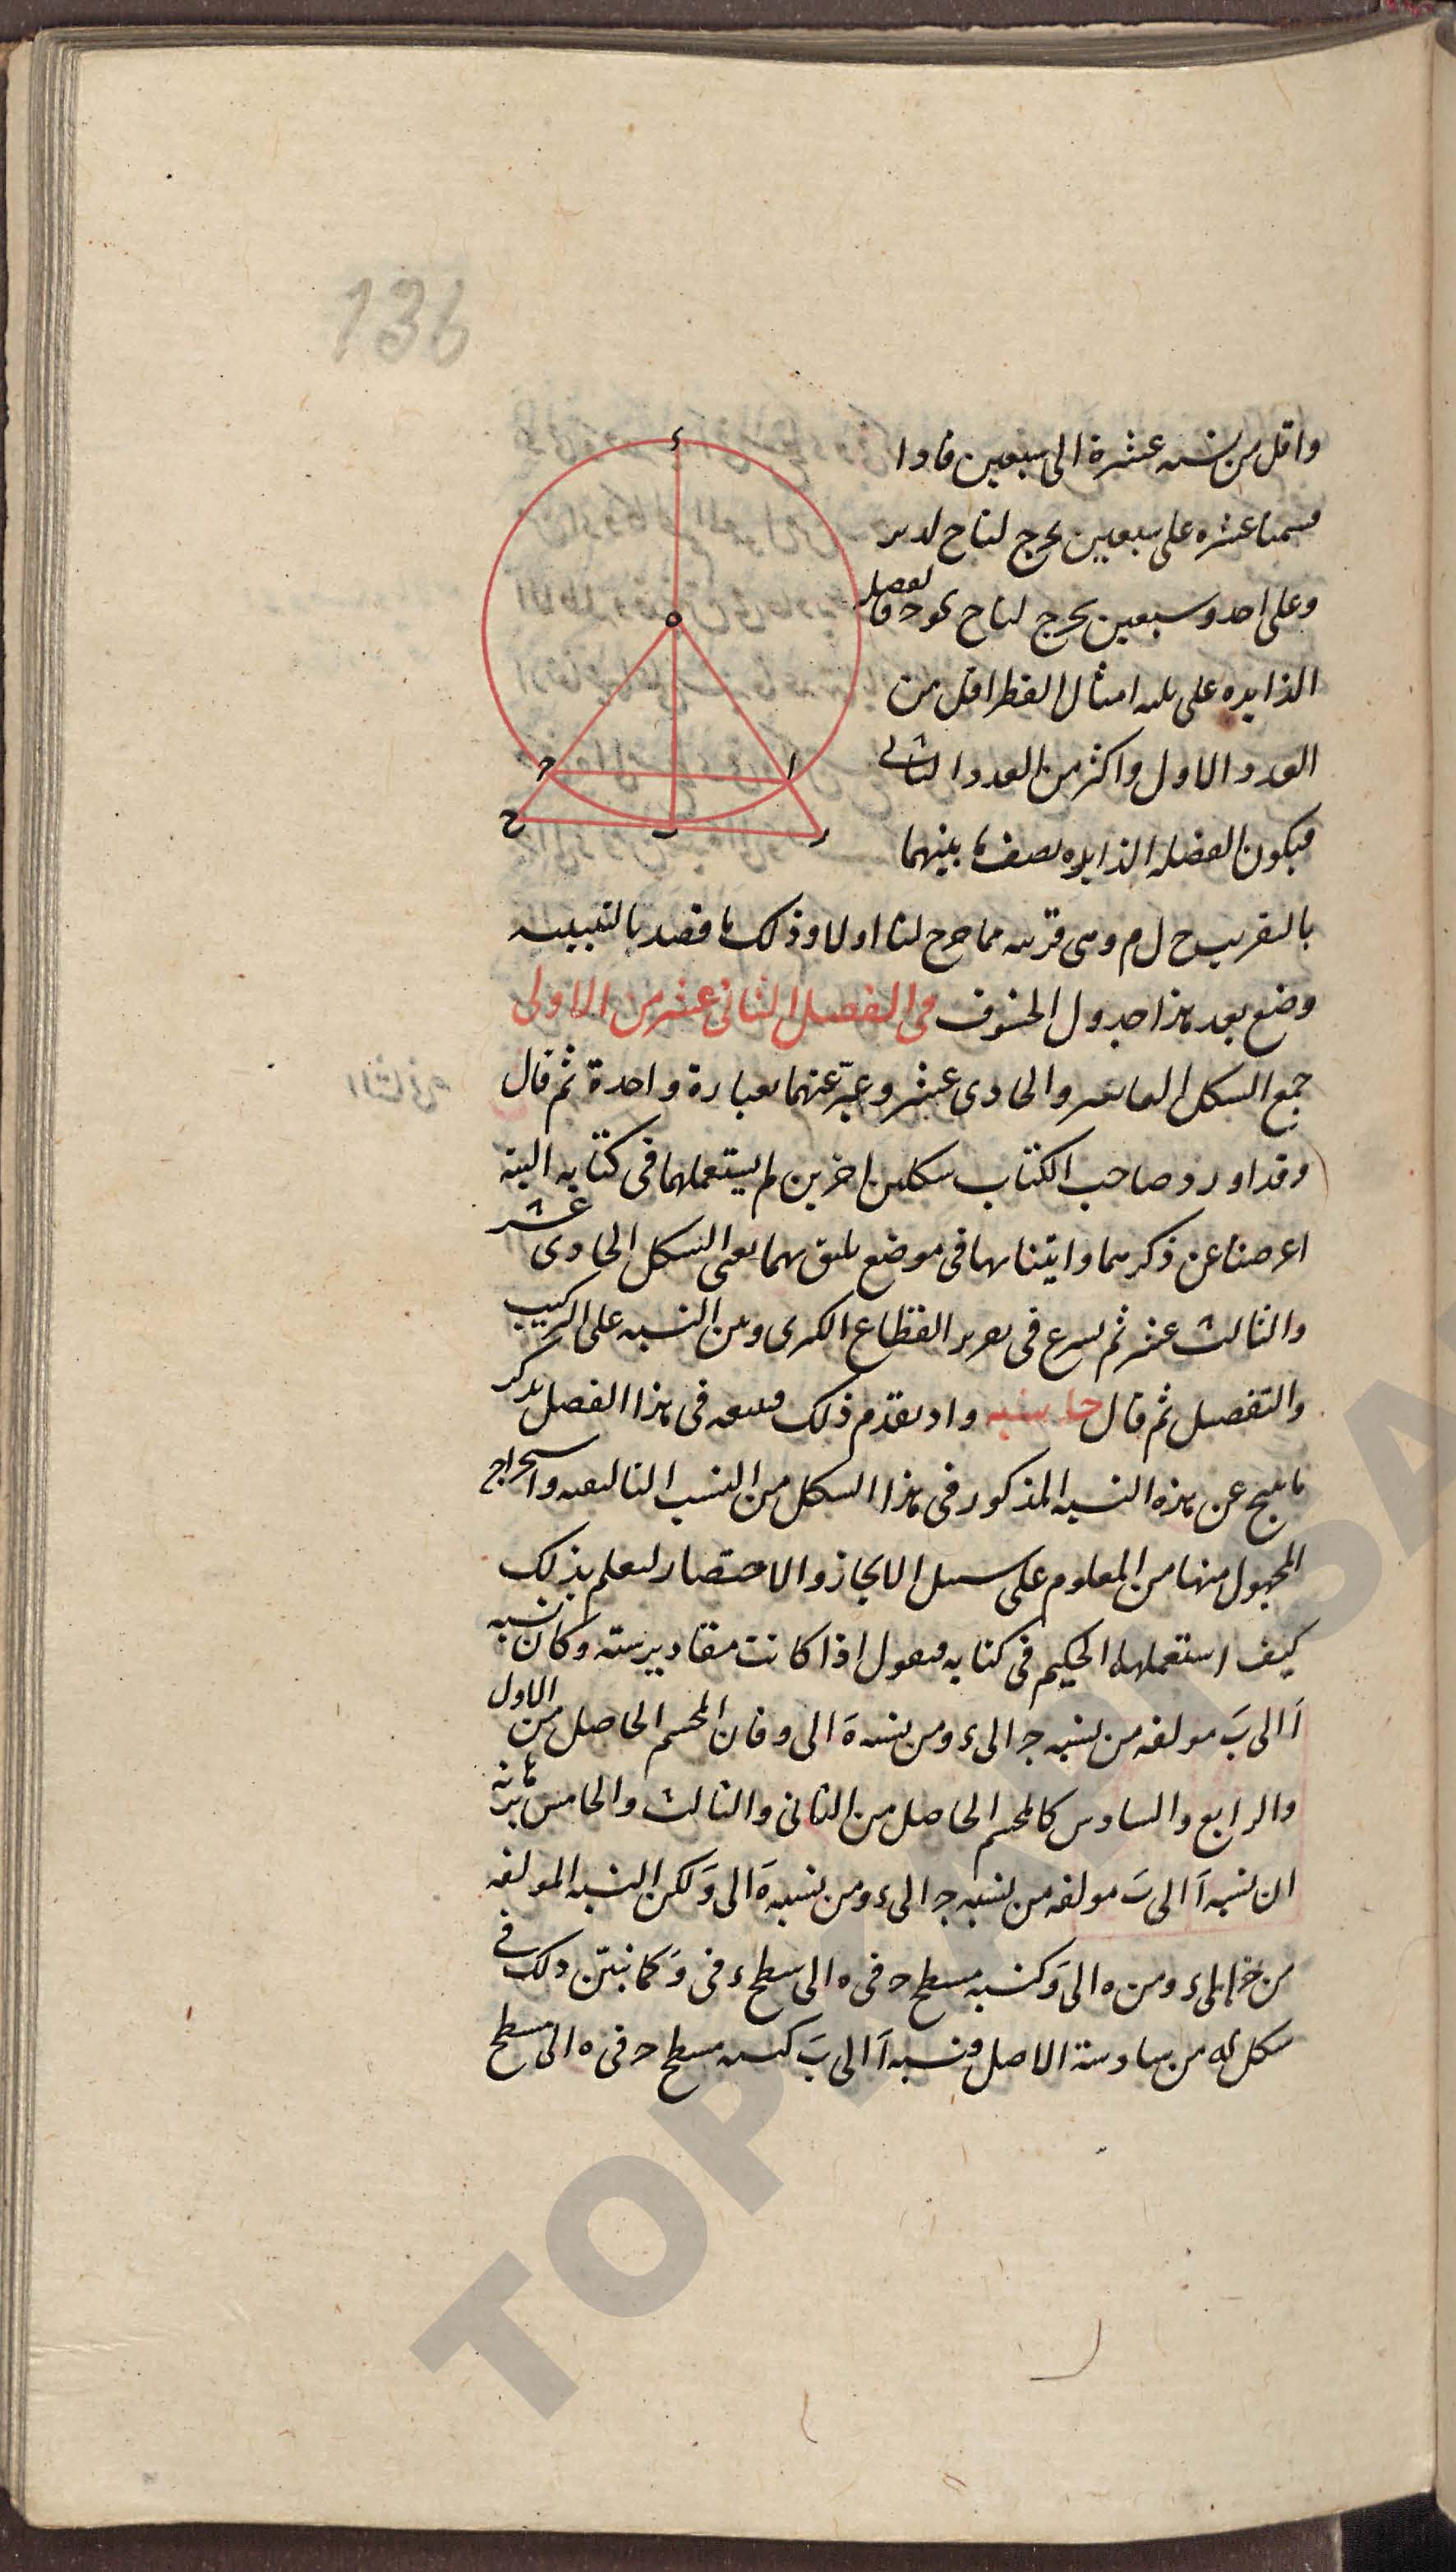 136
واقل من نسبه عشرة الى سبعين فاذا
قسمنا عشره على سبعين يخرج لنا ح لد
وعلى احد وسبعين يخرج لنا ح كو فالفضل
الزايده على ثلثه امثال القطر اقل من
العدد الاول واكثر من العدد الثانى
فيكون الفضله الزايده نصف ما بينهما
بالتقريب ح ل م وهى قريبه مما خرج لنا اولا وذلك ما قصد بالتبيين
وضع بعد هذا جدول الخسوف فى الفصل الثانى عشر من الاولى
جمع الشكل العاشر والحادى عشر وعبّر عنهما بعبارة واحدة ثم قال
وقد اورد صاحب الكتاب شكلين اخرين لم يستعملهما فى كتابه البتة
اعرضنا عن ذكرهما واتينا بهما فى موضع يليق بهما يعنى الشكل الحادى عشر
والثالث عشر ثم شرع فى تقرير القطاع الكرى وبين النسبه على التركيب
والتفصيل ثم قال حاشيه واذ تقدم ذلك فنتبعه فى هذا الفصل بذكر
ما ينتج عن هذه النسبه المذكور فى هذا الشكل من النسب التاليفيه واستخراج
المجهول منها من المعلوم على سبيل الايجاز والاختصار ليعلم بذلك
كيف استعملها الحكيم فى كتابه فنقول اذا كانت مقادير سته وكان نسبه
آ الى بَ مولفه من نسبه جـ الى ء ومن نسبة هَ الى و فان المجسم الحاصل من الاول
والرابع والسادس كالمجسم الحاصل من الثانى والثالث والخامس برهانه
ان نسبه آ الى بَ مولفه من نسبه جـ الى ء ومن نسبة هَ الى وَ لكن النسبه المولفه
من جـ الى ء ومن ه الى وَ كنسبه مسطح حـ فى ه الى سطح ء فى وَ كما تبيّن ذلك فى
شكل له من سادسة الاصل فنسبه آ الى بَ كنسبه مسطح حـ فى ه الى مسطح
ء
ه
ا
حـ
ح
ب
ر
TOPKAPI SA